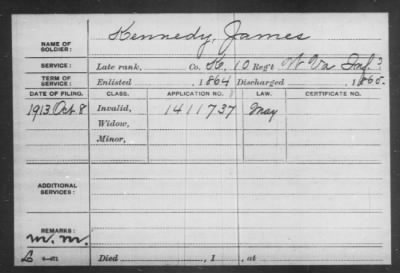 NAME OF SOLDIER: Kennedy, James
SERVICE: Late rank, Co. K, 10 Reg't W Va Inf ?
TERM OF SERVICE: Enlisted , 1864 Discharged , 1865.
DATE OF FILING. CLASS. APPLICATION NO. LAW. CERTIFICATE NO.
1913 Oct 8 Invalid, 1411737 May
Widow,
Minor,
ADDITIONAL SERVICES:
REMARKS:
W. M.
Died , 1 , at